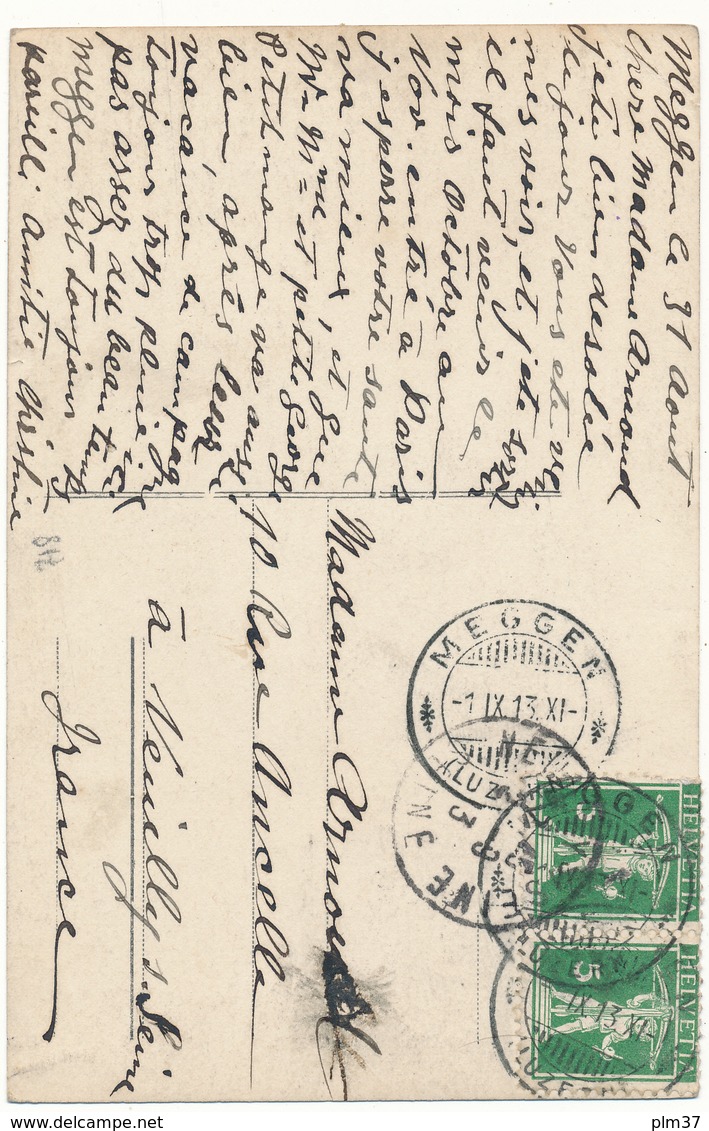 Meggen le 31 Août
Chere Madame Arnoud
j'ete bien desolée
de jour Vous ete ve
mes voir, et j'ete sorti
il faut venir le
mois Octobre au
Nov. entré à Paris
j'esperre votre santé
va mieux, et que
Mr Mme et petite George
Petit mange va aussi
bien, après leur
vacance de campagne
toujour trop pluie
pas asser du beau temps
Meggen est toujours
pareill, Amitie Christine
Madame Arnoud
10 Rue Ancelle
à Neuilly s Seine
France
812
MEGGEN
-1 IX.13.XI-
(LUZ
MEGGEN
INE
HELVETIA
5
HELVETIA
5
IX.13.XI-
(LUZERN)
plm37